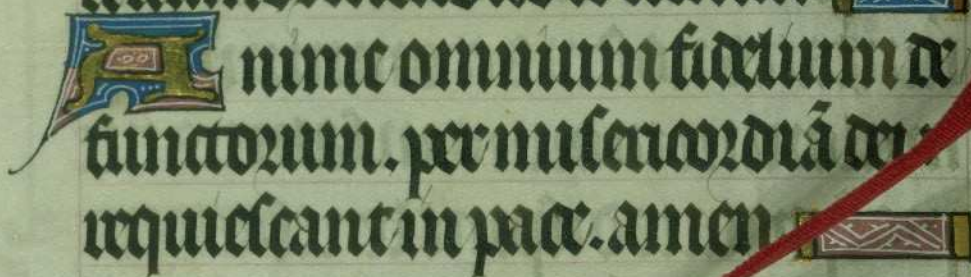 Anime omnium fidelium de
functorum. per misericordiã dei
requiescant in pace. amen